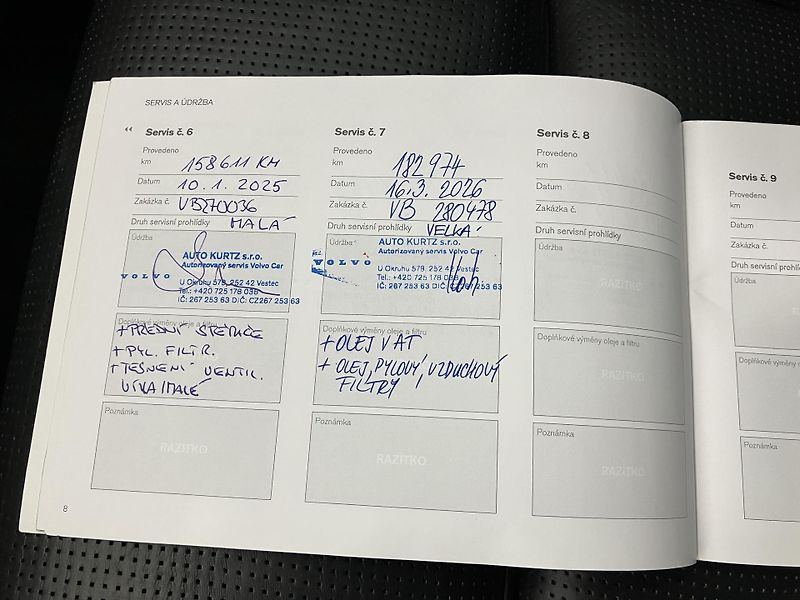 SERVIS A ÚDRŽBA
Servis č. 6
Provedeno
km 158611 KM
Datum 10.1.2025
Zakázka č. VB270036
Druh servisní prohlídky MALÁ
Údržba
AUTO KURTZ s.r.o.
Autorizovaný servis Volvo Car
VOLVO
U Okruhu 579, 252 42 Vestec
Tel.: +420 725 178 036
IČ: 267 253 63 DIČ: CZ267 253 63
Doplňkové výměny oleje a filtru
+PŘEDNÍ STĚRAČE
+PYL. FILTR.
+TĚSNĚNÍ VENTIL.
Poznámka
RAZÍTKO
8
Servis č. 7
Provedeno
km 182974
Datum 16.3. 2026
Zakázka č. VB 280478
Druh servisní prohlídky VELKÁ
Údržba
AUTO KURTZ s.r.o.
Autorizovaný servis Volvo Car
VOLVO
U Okruhu 579, 252 42 Vestec
Tel.: +420 725 178 036
IČ: 267 253 63 DIČ: CZ267 253 63
Doplňkové výměny oleje a filtru
+ OLEJ V AT
+ OLEJ, PYLOVÝ, VZDUCHOVÝ
FILTRY
Poznámka
RAZÍTKO
Servis č. 8
Provedeno
km
Datum
Zakázka č.
Druh servisní prohlídky
Údržba
RAZÍTKO
Doplňkové výměny oleje a filtru
RAZÍTKO
Poznámka
RAZÍTKO
Servis č. 9
Provedeno
km
Datum
Zakázka č.
Druh servisní
Údržba
Doplňkové výměny
Poznámka